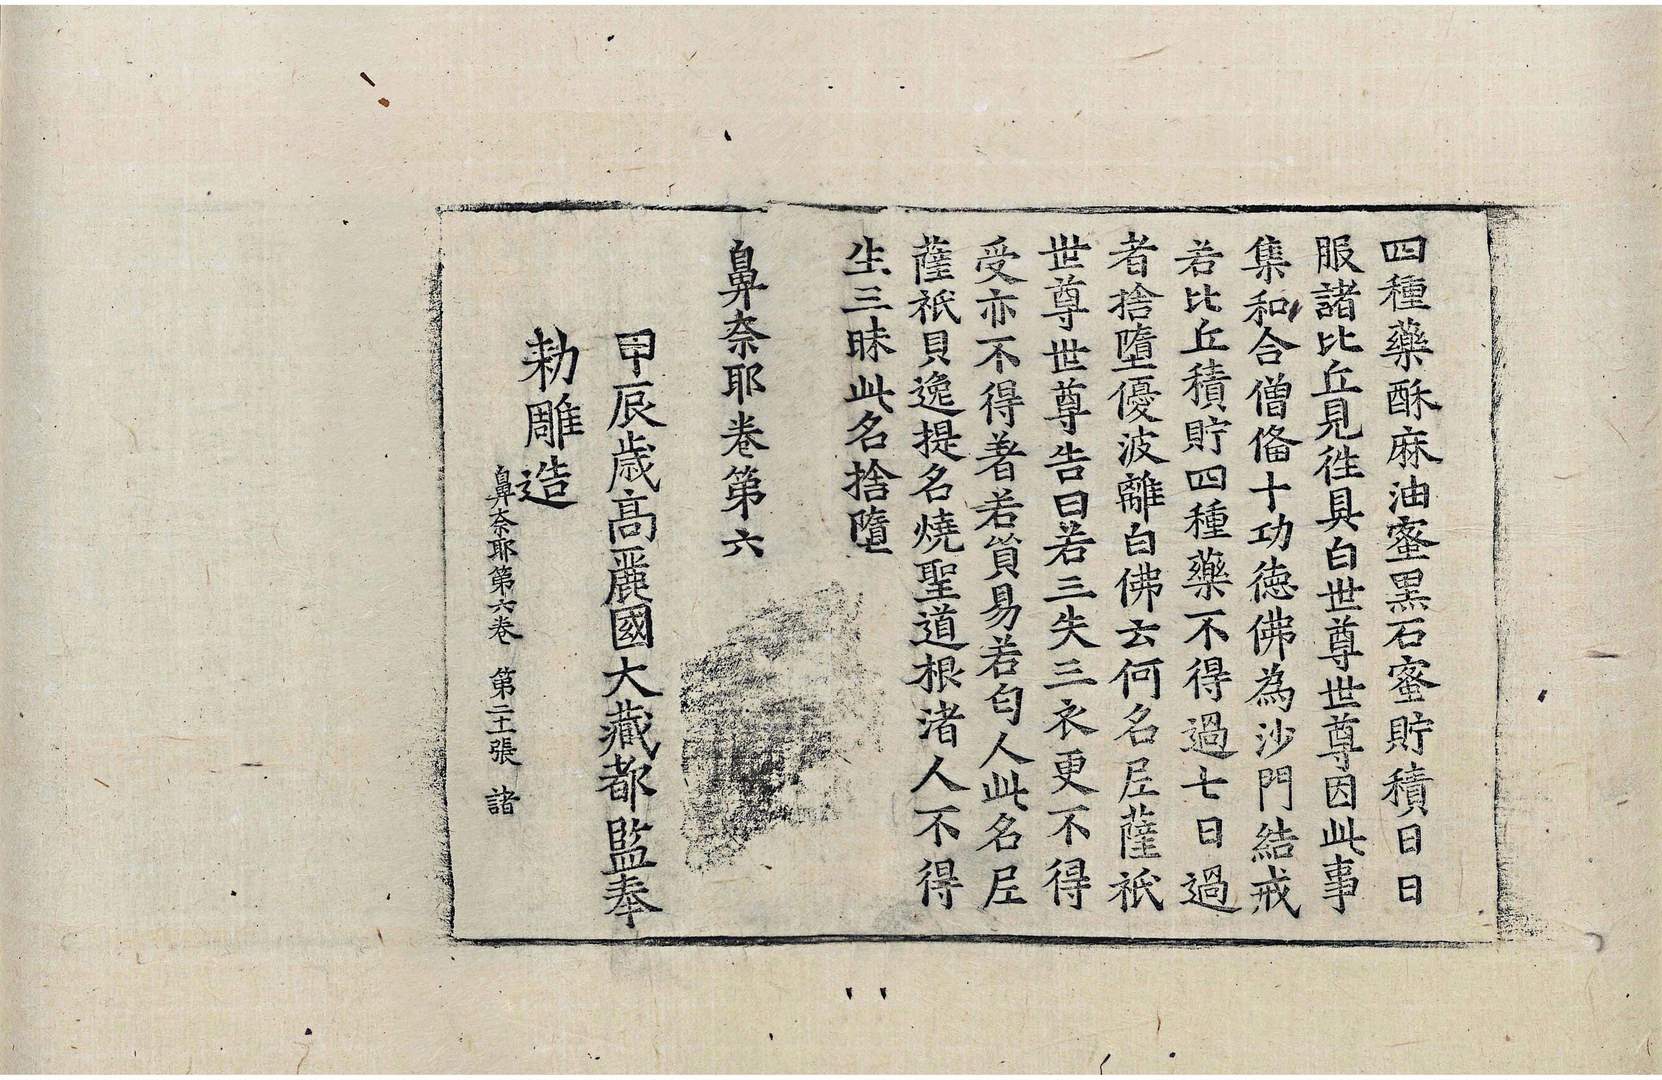 四種藥酥麻油蜜黑石蜜貯積日日
服諸比丘見徃具白世尊世尊因此事
集和合僧俻十功徳佛為沙門結戒
若比丘積貯四種藥不得過七日過
者捨墮優波離白佛云何名尼薩祇
世尊世尊告曰若三失三衣更不得
受亦不得著若貿易若匄人此名尼
薩祇貝逸提名燒聖道根渚人不得
生三昧此名捨墮
鼻奈耶卷第六
甲辰歳高麗國大藏都監奉
勑雕造
鼻奈耶第六卷 第二十張 諸